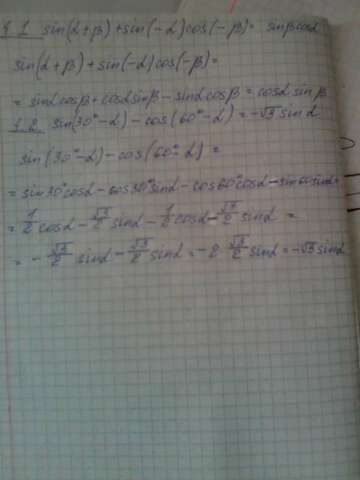 4.1 sin(α+β)+sin(-α)cos(-β)= sinβcosα
sin(α+β)+sin(-α)cos(-β)=
= sinαcosβ+cosαsinβ-sinαcosβ=cosα sinβ
sin(30°-α)-cos(60°-α)=-√3 sinα
sin(30°-α)-cos(60°-α)=
= sin30°cosα-cos30°sinα-cos60°cosα-sin60sinα=
= 1/2 cosα - √3/2 sinα - 1/2 cosα - √3/2 sinα =
= - √3/2 sinα - √3/2 sinα = -2 √3/2 sinα = -√3 sinα